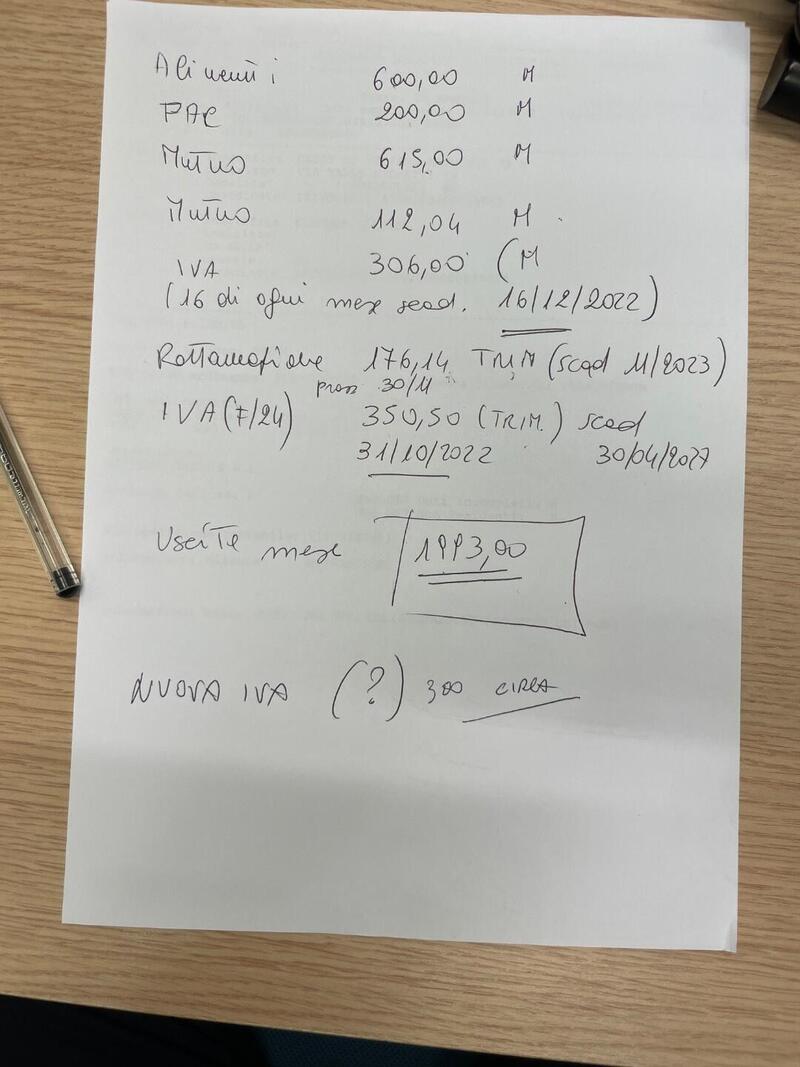 Alimenti 600,00 M
PAC 200,00 M
Mutuo 615,00 M
Mutuo 112,04 M
IVA 306,00 (M
(16 di ogni mese scad. 16/12/2022)
Rottamazione 176,14 TRIM (scad 11/2023)
pross 30/11
IVA (7/24) 350,50 (TRIM.) scad
31/10/2022 30/04/2027
Uscite mese 1993,00
NUOVA IVA (?) 300 CIRCA